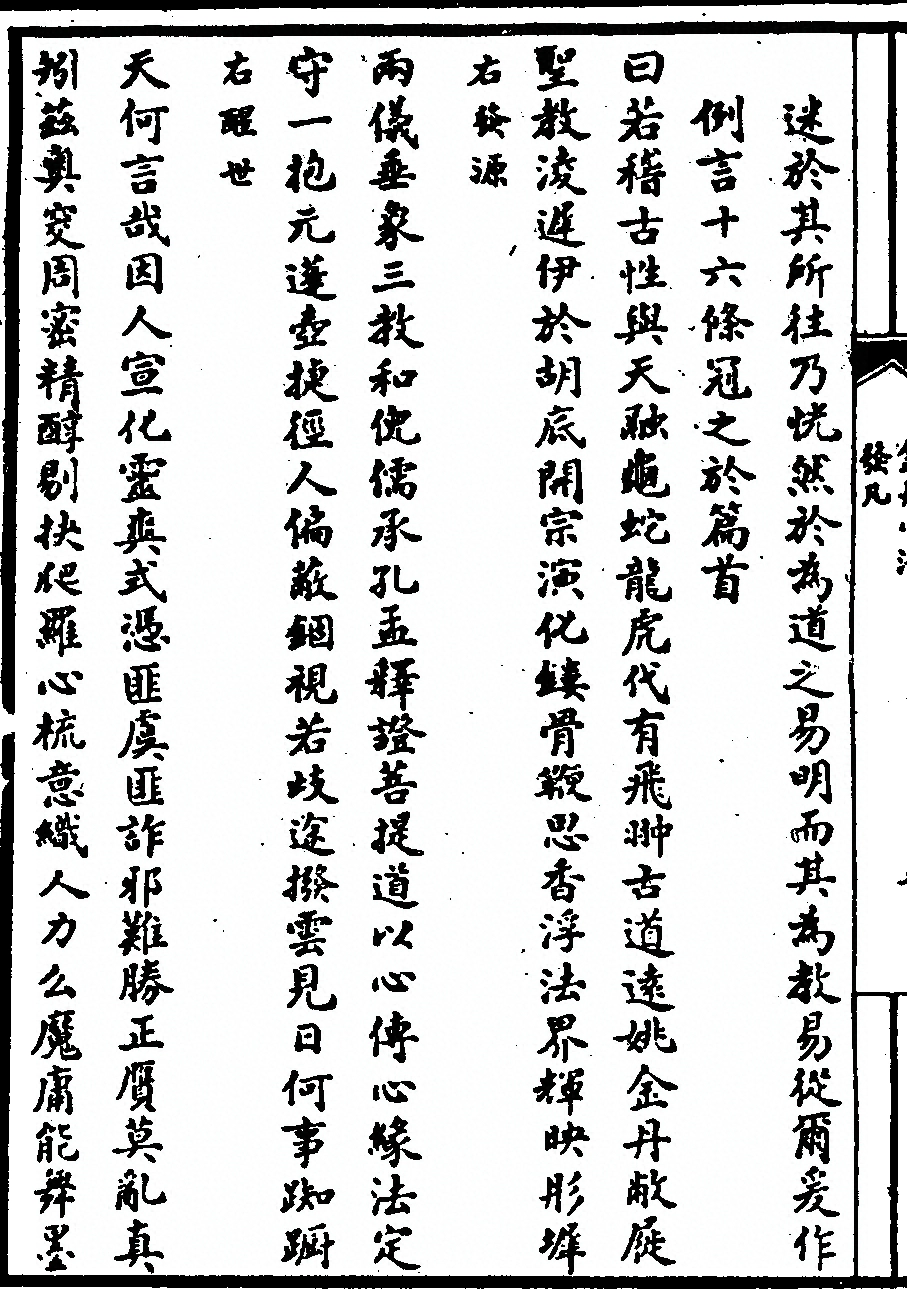 發凡
迷於其所往乃恍然於為道之易明而其為教易從爾爰作
例言十六條冠之於篇首
曰若稽古性與天融龜蛇龍虎代有飛翀古道遠姚金丹敝屣
聖教凌遲伊於胡底開宗演化鏤骨鞭思香浮法界輝映彤墀
右發源
兩儀垂象三教和倪儒承孔孟釋證菩提道以心傳心緣法定
守一抱元蓬壺捷徑人偏蔽錮視若歧途撥雲見日何事踟躕
右醒世
天何言哉因人宣化靈爽式憑匪虞匪詐邪難勝正贗莫亂真
矧茲奧窔周密精醇剔抉爬羅心梳意織人力么魔庸能舞墨